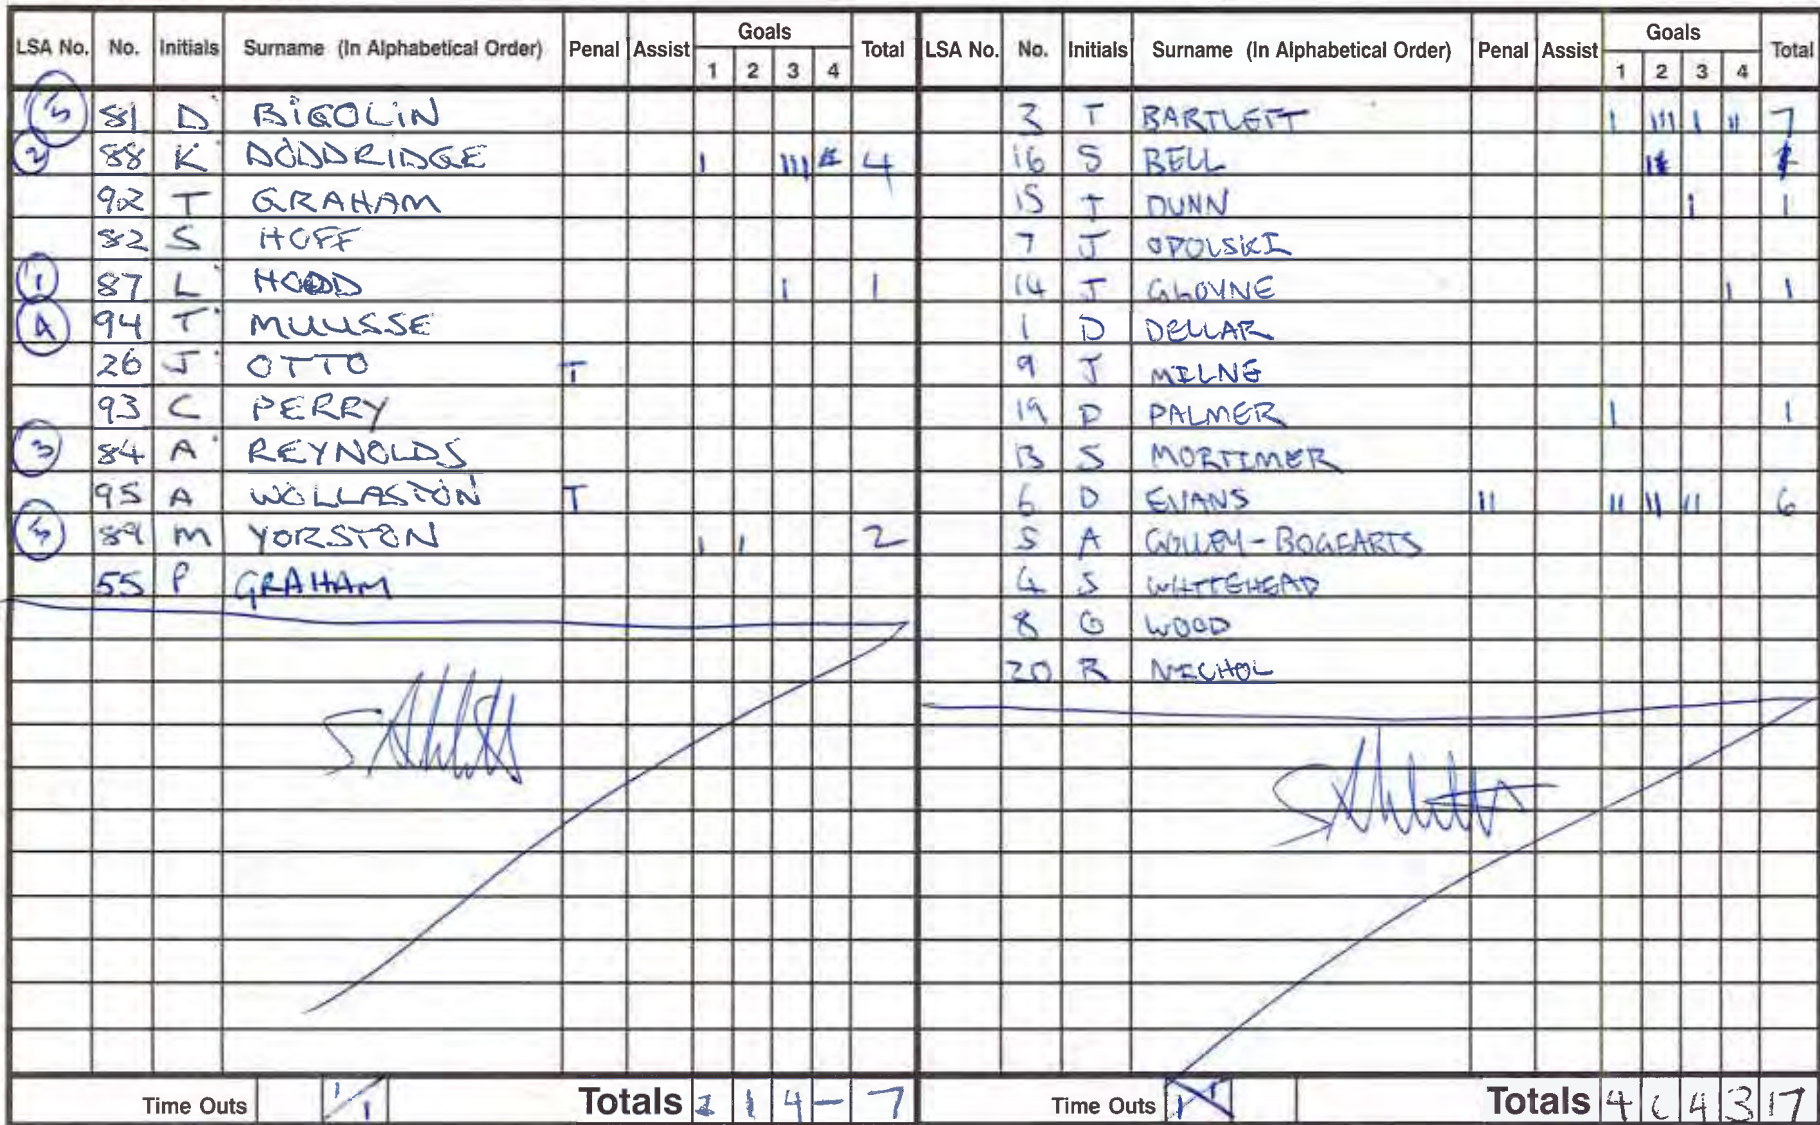 LSA No. No. Initials Surname (In Alphabetical Order) Penal Assist Goals 1 2 3 4 Total
5 81 D BIGOLIN
2 88 K DODDRIDGE I III 4
92 T GRAHAM
82 S HOFF
1 87 L HOOD I 1
4 94 T MUUSSE
26 J OTTO T
93 C PERRY
3 84 A REYNOLDS
95 A WOLLASTON T
5 89 M YORSTON I I 2
55 P GRAHAM
Time Outs 1/1 Totals 2 1 4 - 7
LSA No. No. Initials Surname (In Alphabetical Order) Penal Assist Goals 1 2 3 4 Total
3 T BARTLETT I III I II 7
16 S BELL
15 T DUNN I 1
7 J OPOLSKI
14 J GLOYNE I 1
1 D DELLAR
9 J MILNE
19 D PALMER I 1
13 S MORTIMER
6 D EVANS II II II II 6
5 A GOLLEY-BOGEARTS
4 S WHITEHEAD
8 G WOOD
20 R NICHOL
Time Outs 1 1 Totals 4 6 4 3 17